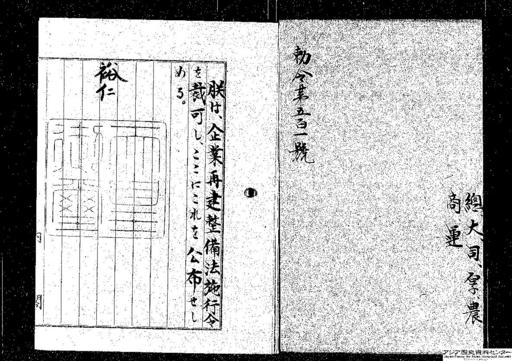 勅令第五百一號
總、大、司、厚、農
商、運
朕は、企業再建整備法施行令
を裁可し、ここにこれを公布せし
める。
裕仁
内閣
アジア歴史資料センター